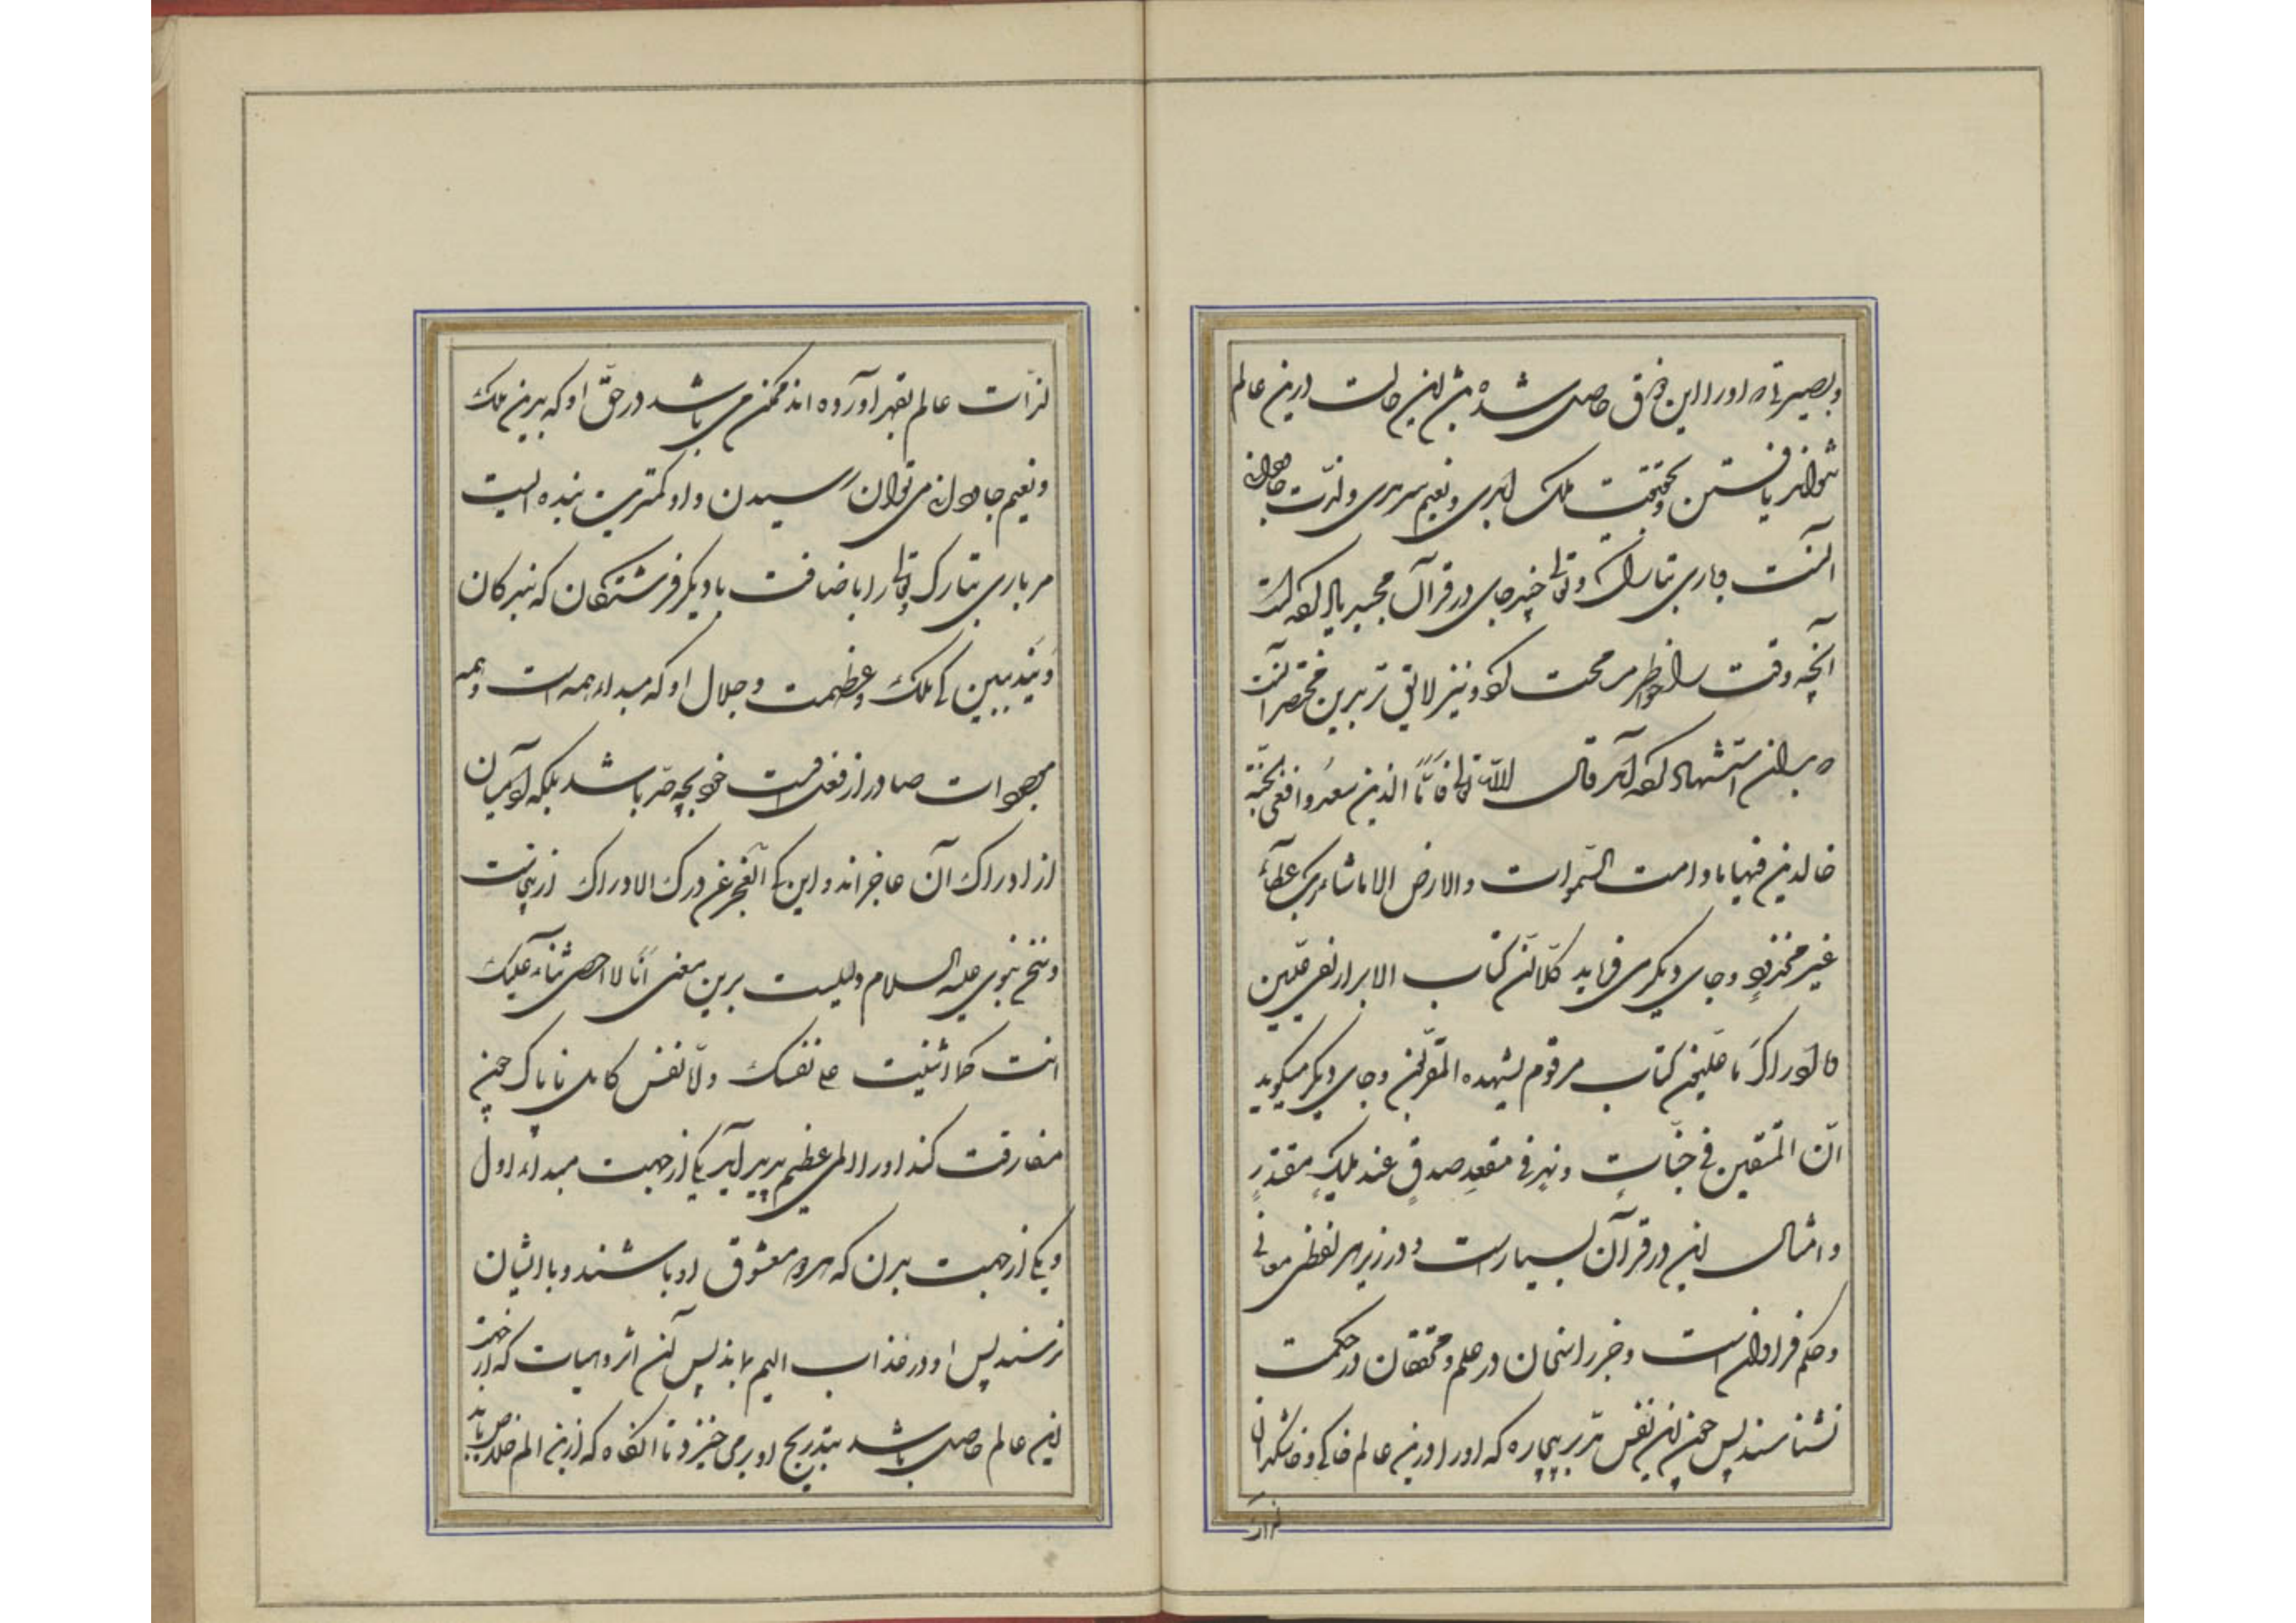 و بصیرتی که او را این ذوق حاصل شده بیش ازین حالت درین عالم
نتواند یافتن بحقیقت ملک ابدی و نعیم سرمدی و لذّت جاودانه
آنست و باری تبارک و تعالی چند جای در قرآن مجید یاد کرده است
آنچه وقت را بخاطر محت کرد و نیز لایق تر برین مختصر آنست
که بدان استشهاد کرده آید قال الله تعالی فامّا الذین سعدوا ففی الجنّة
خالدین فیها ما دامت السّموات والارض الا ما شاء ربک عطآءً
غیر مجذوذٍ و جای دیگر می فرماید کلّا انّ کتاب الابرار لفی علّیین
و ما ادراک ما علّیون کتاب مرقوم یشهده المقرّبون و جای دیگر میگوید
انّ المتّقین فی جنّاتٍ و نهر فی مقعدِ صدقٍ عند ملیکٍ مقتدرٍ
و امثال این در قرآن بسیارست و در زیر هر لفظی معانی
و حکم فراوان است و جز راسخان در علم و محققان در حکمت
نشناسند پس چون این نفس مدبر بیچاره که او را درین عالم خاکی و خاشکدان
لذّات
لذّات عالم بقهر آورده اند ممکن می باشد در حقّ او که برین ملک
و نعیم جاودانه می توان رسیدن و او کمترین بنده ایست
مر باری تبارک و تعالی را باضافت با دیگر فرشتگان که بندگان
ویند ببین که ملک و عظمت و جلال او که مبداء همه است و همه
موجودات صادر از فعل اوست خود بچه حدّ باشد بلکه آدمیان
از ادراک آن عاجزاند و این که العجز عن درک الادراک ازینجاست
و نسخ نبوی علیه السلام دلیلست برین معنی انّا لا احصی ثناء علیک
انت کما اثنیت علی نفسک و لا نفس کامل ناپاک چون
مفارقت کند او را المی عظیم پدید آید یکی از جهت مبداء اول
و یکی از جهت بدن که هر دو معشوق او باشند و با ایشان
نرسند پس او در عذاب الیم بماند پس آن اثر و هیات که او را از جهت
این عالم حاصل باشد بتدریج ازو برمی خیزد تا آنگاه که ازین الم خلاص یابد